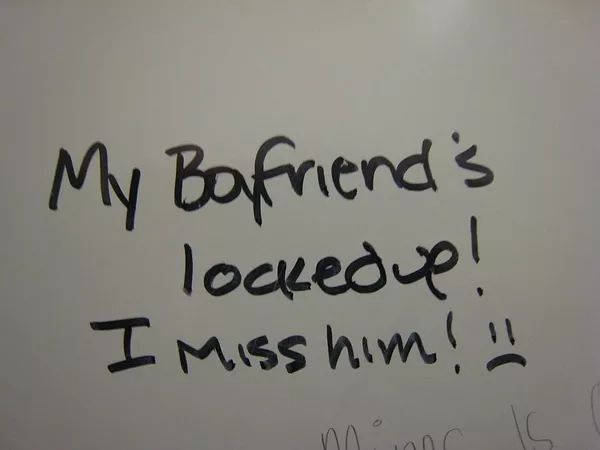 My Boyfriend's
locked up!
I Miss him! :(
Is